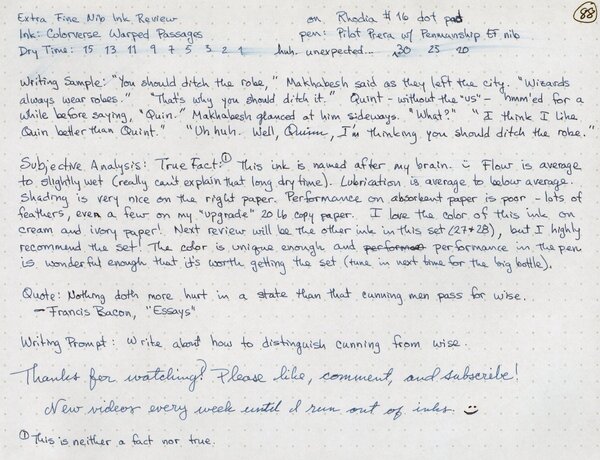 Extra Fine Nib Ink Review on Rhodia #16 dot pad 88
Ink: Colorverse Warped Passages pen: Pilot Prera w/ Penmanship EF nib
Dry Time: 15 13 11 9 7 5 3 2 1 huh. unexpected... 30 25 20
Writing Sample: "You should ditch the robe," Makhabesh said as they left the city. "Wizards
always wear robes." "That's why you should ditch it." Quint - without the "us" - hmm'ed for a
while before saying, "Quin." Makhabesh glanced at him sideways. "What?" "I think I like
Quin better than Quint." "Uh huh. Well, Quinn, I'm thinking you should ditch the robe."
Subjective Analysis: True Fact:① This ink is named after my brain. Flow is average
to slightly wet (really can't explain that long dry time). Lubrication is average to below average.
Shading is very nice on the right paper. Performance on absorbent paper is poor - lots of
feathers, even a few on my "upgrade" 20 lb copy paper. I love the color of this ink on
cream and ivory paper! Next review will be the other ink in this set (27+28), but I highly
recommend the set! The color is unique enough and performance in the pen
is wonderful enough that it's worth getting the set (tune in next time for the big bottle).
Quote: Nothing doth more hurt in a state than that cunning men pass for wise.
- Francis Bacon, "Essays"
Writing Prompt: Write about how to distinguish cunning from wise.
Thanks for watching! Please like, comment, and subscribe!
New videos every week until I run out of inks.
① This is neither a fact nor true.